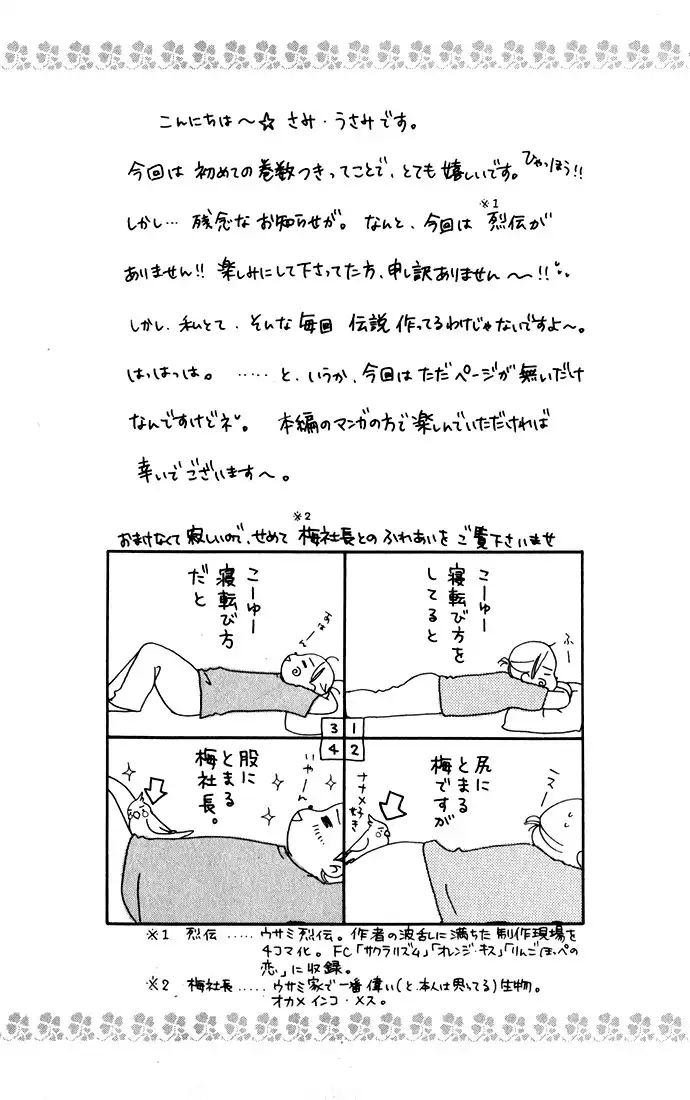 こんにちは～☆ さみ・うさみです。
今回は 初めての巻数つきってことで、とても嬉しいです。ひゃっほう!!
しかし… 残念なお知らせが。なんと、今回は ※1 烈伝が
ありません!! 楽しみにして下さってた方、申し訳ありません～～!!
しかし、私とて、そんな毎回 伝説 作ってるわけじゃないですよ～。
はっはっは。 …… と、いうか、今回はただページが無いだけ
なんですけどネ。 本編のマンガの方で楽しんでいただければ
幸いでございます～。
おまけなくて寂しいので、せめて ※2 梅社長とのふれあいを ご覧下さいませ
こーゆー
寝転び方を
してると
ふー
1
尻に
とまる
梅ですが
ナナメ好き
2
こーゆー
寝転び方
だと
3
股に
とまる
梅社長。
いやーん
4
※1 烈伝 ‥‥‥ ウサミ烈伝。作者の波乱に満ちた制作現場を
4コマ化。FC「サクラリズム」「オレンジ・キス」「りんごほっぺの
恋」に収録。
※2 梅社長 ‥‥‥ ウサミ家で一番偉い(と、本人は思ってる)生物。
オカメインコ・メス。